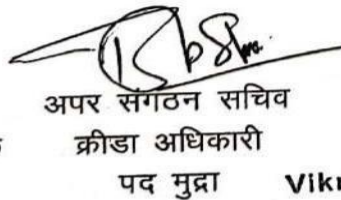 अपर संगठन सचिव
क्रीडा अधिकारी
पद मुद्रा Vikr